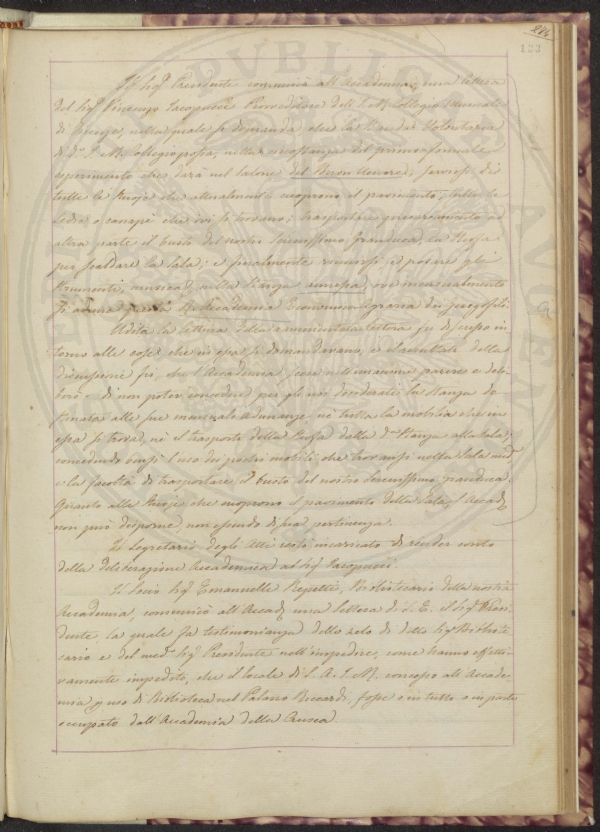 133
Il Sig.r Presidente comunicò all'Accademia una lettera
del Sig.r Vincenzo Jacopucci Provveditore dell'I. R. Collegio
di Firenze, nella quale si domanda che la Banda Volontaria
di d.o I. R. Collegio possa, nella circostanza del primo formale
esperimento che darà nel Salone del Buon Umore, servirsi di
tutte le stuoje che attualmente cuoprono il pavimento, tutte le
sedie o canapè che ivi si trovano; trasportare provvisoriamente ad
altra parte il busto del nostro Serenissimo Granduca, la stufa
per scaldare la Sala; e finalmente riunirsi, e posare gli
strumenti musicali nella stanza annessa, ove mensualmente
si aduna questa R. Accademia Economico Agraria dei Georgofili.
Udita la lettura della rammentata lettera fu discusso in-
torno alle cose che in essa si domandavano, e il resultato della
discussione fu, che l'Accademia, cose nell'unanime parere e deli-
berò di non poter concedere per gli usi desiderati la stanza de-
stinata alle sue mensuali adunanze, nè tutta la mobilia che in
essa si trova, nè il trasporto della stufa dalla d.a stanza alla sala;
concedendo bensì l'uso dei pochi mobili che trovansi nella sala med.a
e la facoltà di trasportare il busto del nostro Serenissimo Granduca.
Quanto alle stuoje che cuoprono il pavimento della Sala, l'Accad.a
non può disporne, non essendo di sua pertinenza.
Il Segretario degli Atti restò incaricato di render conto
della deliberazione Accademica al Sig.r Jacopucci.
Il Socio Sig.r Emanuelle Repetti, Bibliotecario della nostra
Accademia, comunicò all'Accad.a una lettera di S. E. il Sig.r Presi-
dente la quale fa testimonianza dello zelo di detto Sig.r Bibliote-
cario e del med.o Sig.r Presidente nell'impedire, come hanno effetti-
vamente impedito, che il locale di S. A. I. R. concesso all'Accade-
mia per uso di Biblioteca nel Palazzo Riccardi, fosse o in tutto o in parte
occupato dall'Accademia della Crusca.